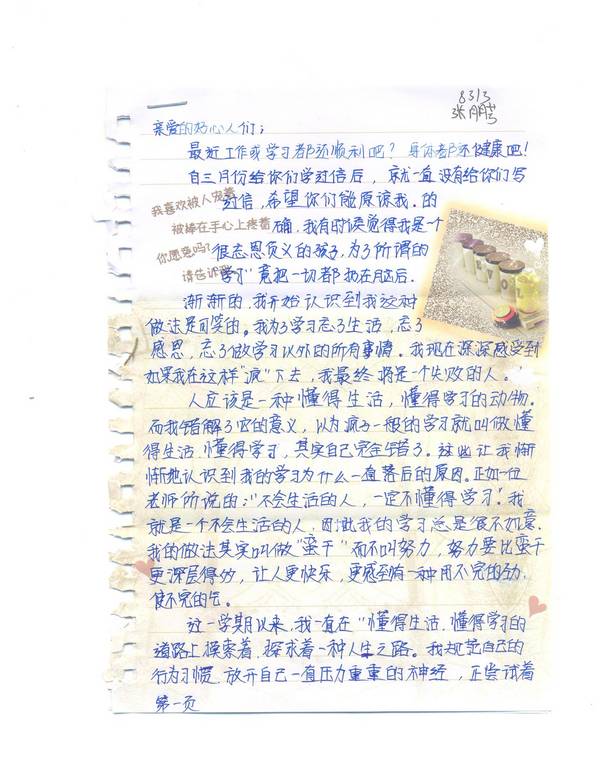 8313
张腾
亲爱的好心人们:
最近工作或学习都还顺利吧?身体都还健康吧!
自三月份给你们写过信后,就一直没有给你们写
过信,希望你们能原谅我.的
我喜欢被人宠着
被棒在手心上疼着
确,我有时候觉得我是个
你愿意吗?
很忘恩负义的孩子,为了所谓的
请告诉我
“学习”竟把一切都抛在脑后.
渐渐的,我开始认识到我这种
做法是可笑的。我为了学习忘了生活,忘了
感恩,忘了做学习以外的所有事情。我现在深深感受到
如果我在这样“疯”下去,我最终将是个失败的人。
人应该是一种懂得生活,懂得学习的动物.
而我错解了它的意义,以为疯了一般的学习就叫做懂
得生活.懂得学习,其实自己完全错了。这些让我渐
渐地认识到我的学习为什么一直落后的原因.正如一位
老师所说的:“不会生活的人,一定不懂得学习”.我
就是一个不会生活的人,因此我的学习总是很不如意.
我的做法其实叫做“蛮干”而不叫努力,努力要比蛮干
更深层得多,让人更快乐,更感到有一种用不完的劲.
使不完的气。
这一学期以来,我一直在“懂得生活.懂得学习的
道路上摸索着.探求着一种人生之路。我规范自己的
行为习惯.放开自己一直压力重重的神经,正尝试着
第一页